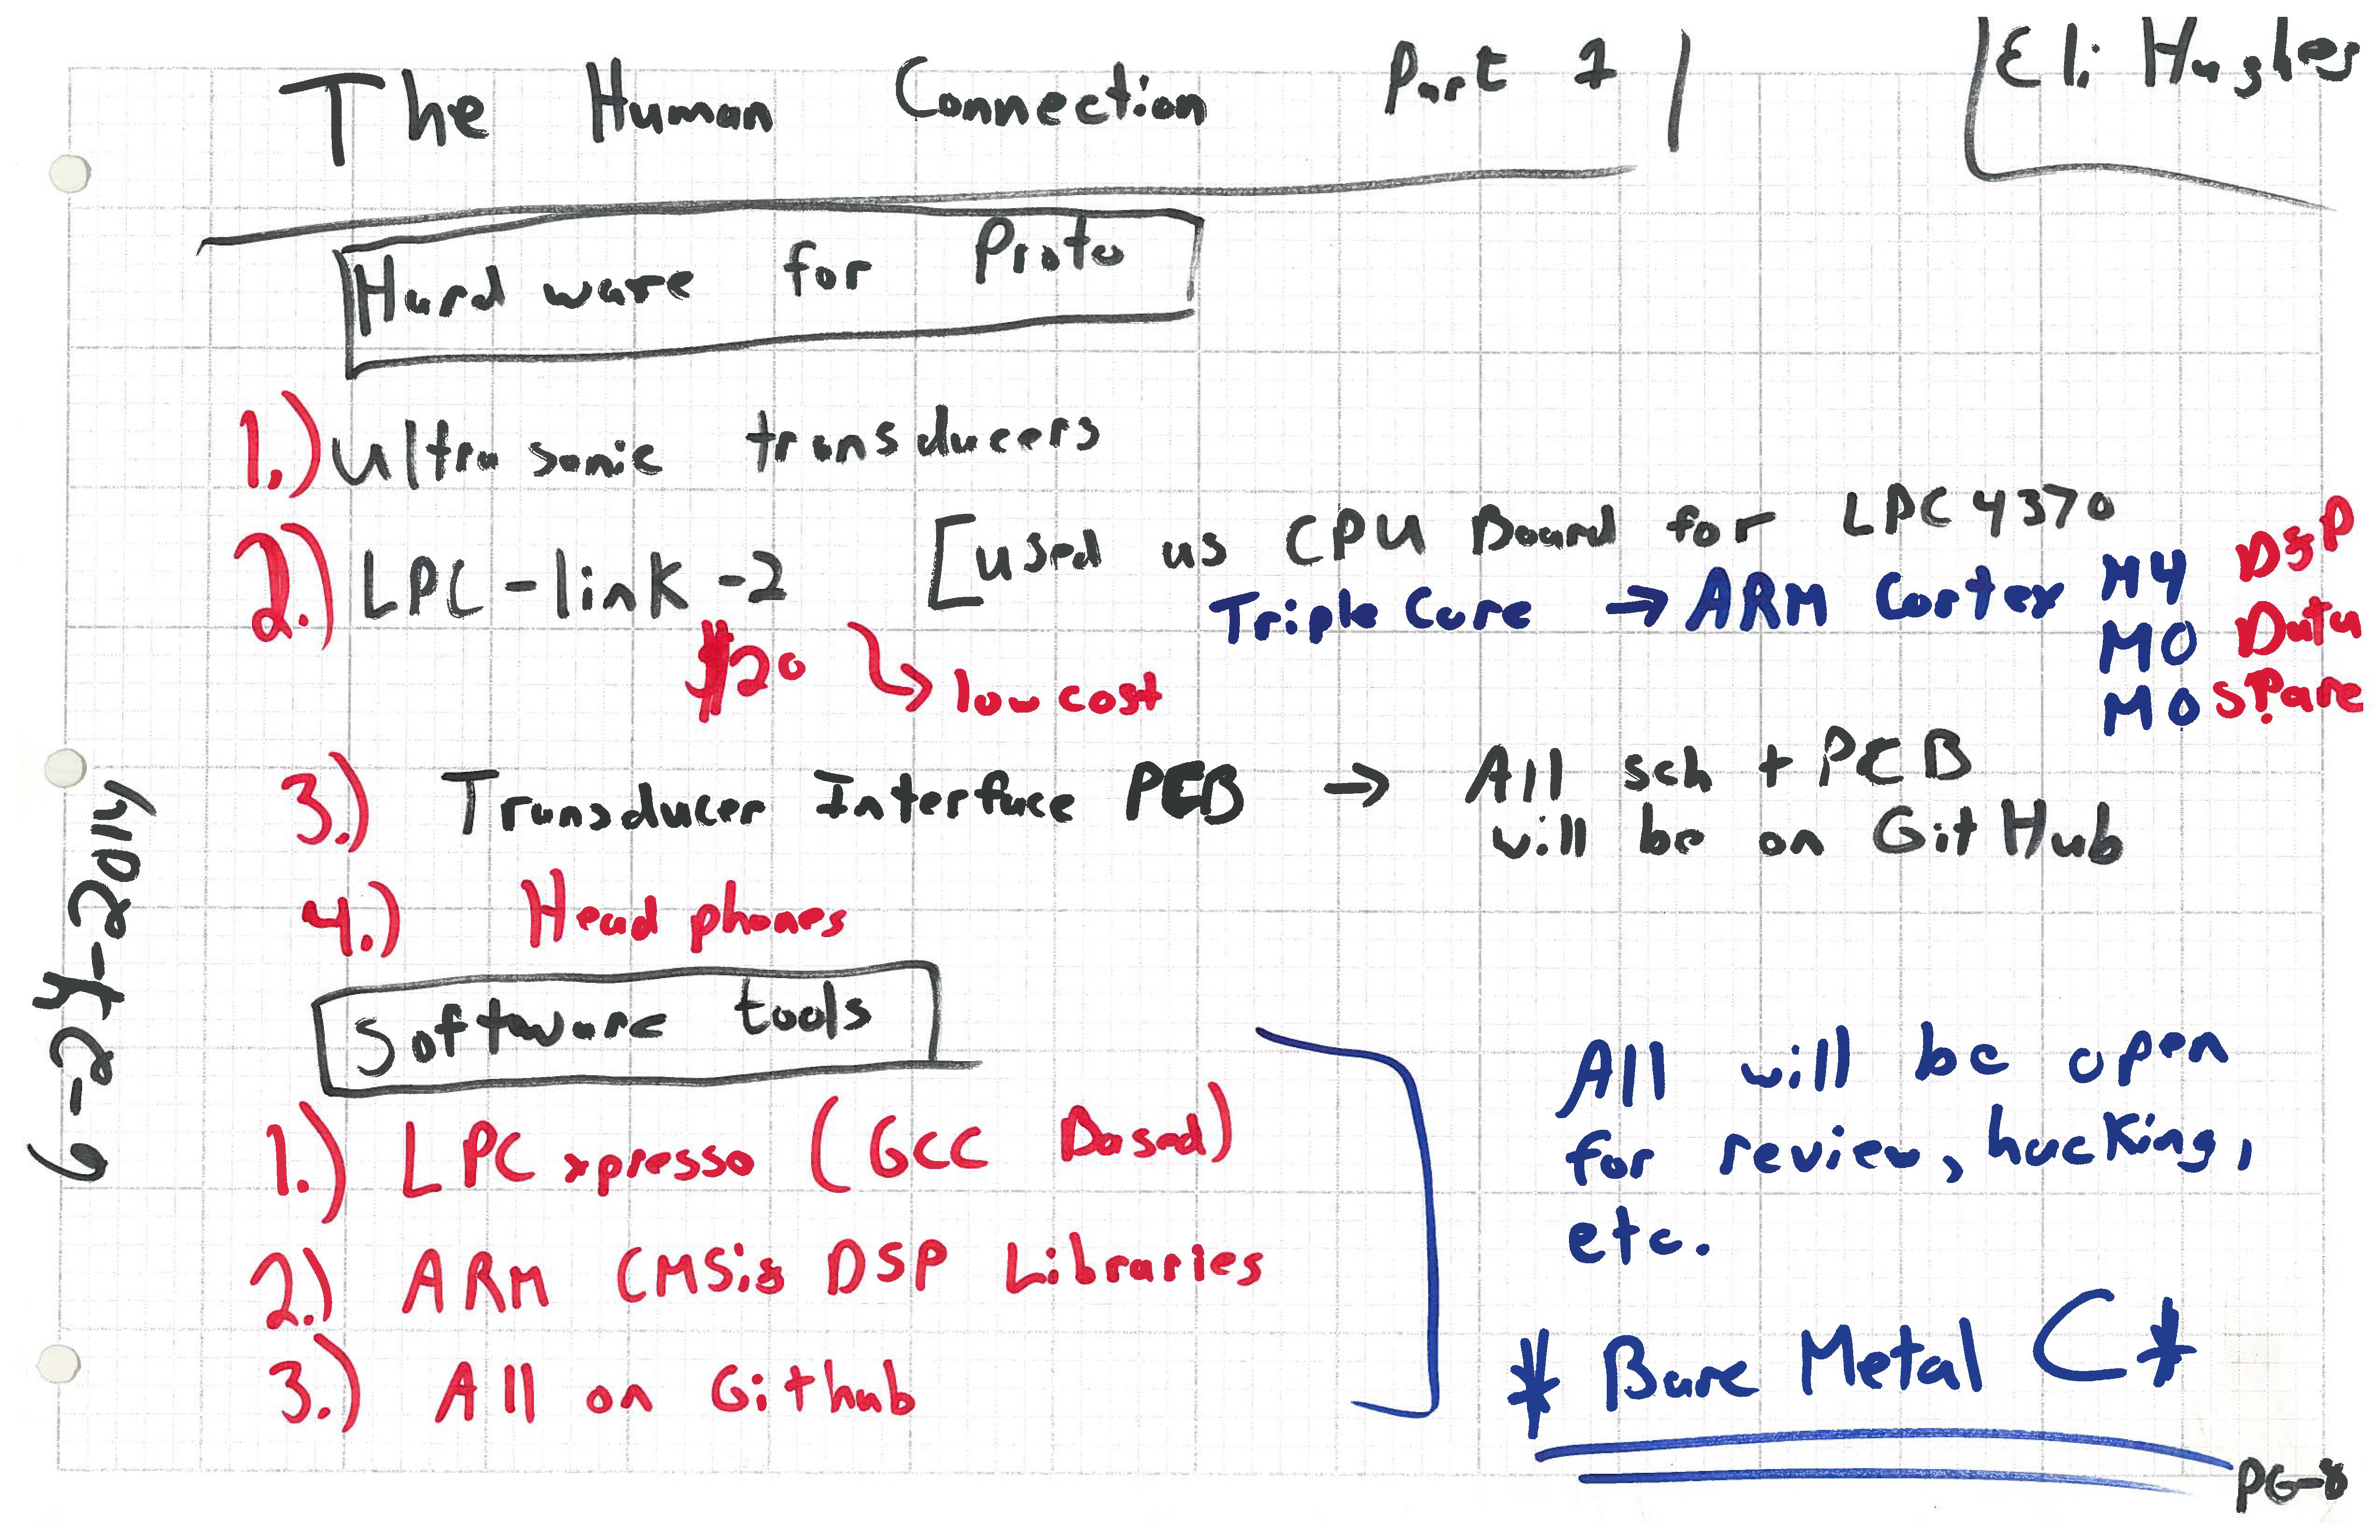 The Human Connection Part 1
Eli Hughes
Hardware for Proto
1.) Ultrasonic transducers
2.) LPC-link-2 [used as CPU Board for LPC4370
Triple Core → ARM Cortex M4 DSP
M0 Data
M0 Spare
$20 → low cost
3.) Transducer Interface PCB → All sch + PCB
will be on GitHub
4.) Head phones
Software tools
1.) LPCxpresso (GCC Based)
2.) ARM CMSis DSP Libraries
3.) All on Github
All will be open
for review, hacking,
etc.
* Bare Metal C *
6-24-2014
PG-8